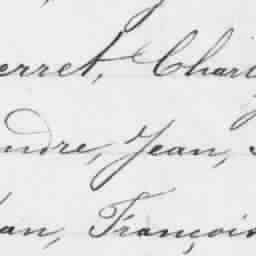 erret, Charl
endre, Jean,
an, François